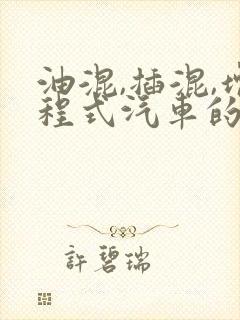 油混,插混,增
程式汽車的
許碧瑞